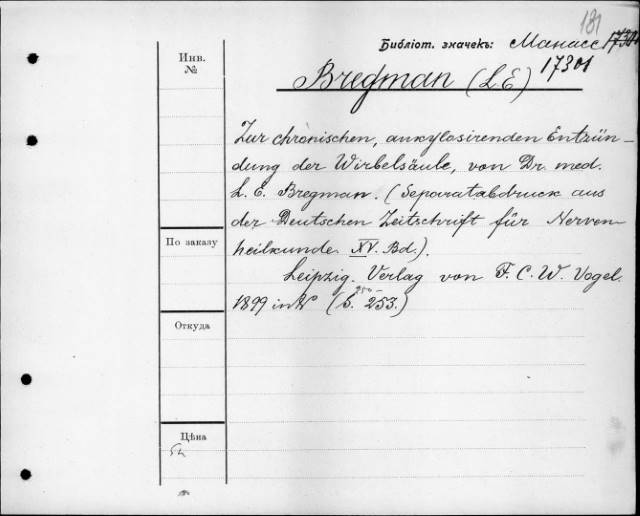 181
Библіот. значекъ: Манасс
17301
Инв.
№
Bregman (L.E.)
Zur chronischen, ankylosirenden Entzün-
dung der Wirbelsäule, von Dr. med.
L. E. Bregman. (Separatabdruck aus
der Deutschen Zeitschrift für Nerven-
heilkunde XV. Bd.).
Leipzig. Verlag von F. C. W. Vogel.
1899 in (S. 253.)
По заказу
Откуда
Цѣна